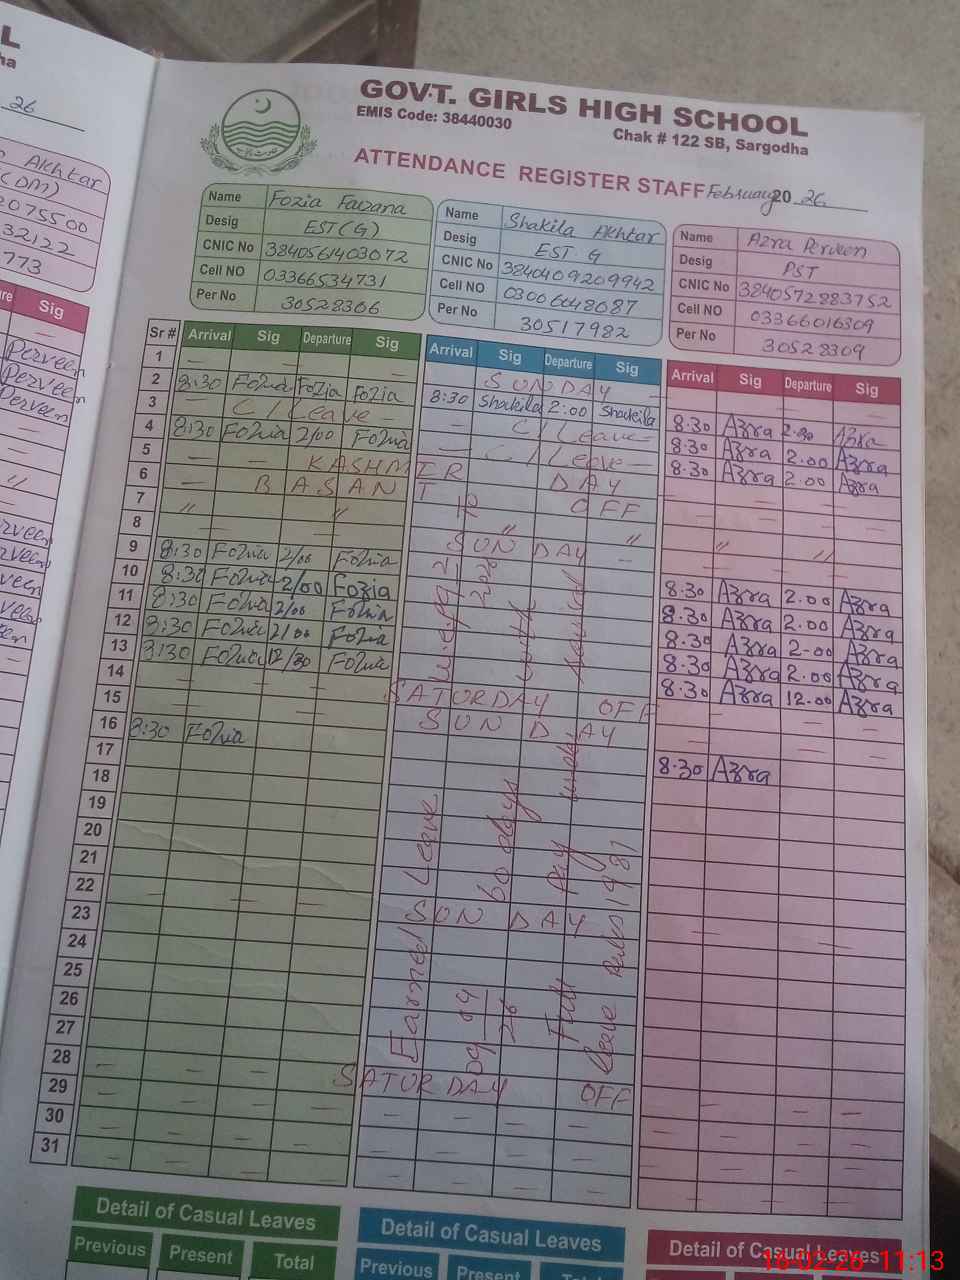 GOVT. GIRLS HIGH SCHOOL
EMIS Code: 38440030
Chak # 122 SB, Sargodha
ATTENDANCE REGISTER STAFF February 20 26
Name Fozia Faizana
Desig EST(G)
CNIC No 3840561403072
Cell NO 03366534731
Per No 30528306
Name Shakila Akhtar
Desig EST. G
CNIC No 3840409209942
Cell NO 03006048087
Per No 30517982
Name Azra Perveen
Desig PST
CNIC No 3840572883752
Cell NO 03366016309
Per No 30528309
Sr # Arrival Sig Departure Sig Arrival Sig Departure Sig Arrival Sig Departure Sig
1 SUNDAY
2 8:30 Fozia Fozia Fozia 8:30 Shakila 2:00 Shakila 8.30 Azra 2.00 Azra
3 C/Leave C/Leave 8.30 Azra 2.00 Azra
4 8:30 Fozia 2/00 Fozia C/Leave 8.30 Azra 2.00 Azra
5 KASHMIR DAY
6 BASANT OFF
7 " " " " " "
8 SUNDAY
9 8:30 Fozia 2/00 Fozia 8.30 Azra 2.00 Azra
10 8:30 Fozia 2/00 Fozia 8.30 Azra 2.00 Azra
11 8:30 Fozia 2/00 Fozia 8.30 Azra 2-00 Azra
12 8:30 Fozia 2/00 Fozia 8.30 Azra 2.00 Azra
13 8:30 Fozia 12/30 Fozia 8.30 Azra 12.00 Azra
14 SATURDAY OFF
15 SUNDAY
16 8:30 Fozia 8.30 Azra
17
18
19
20
21
22 SUNDAY
23
24
25
26
27
28 SATURDAY OFF
29
30
31
Earned Leave
60 days
Full pay under
leave rules 1981
Detail of Casual Leaves
Previous Present Total
Detail of Casual Leaves
Previous Present
Detail of Casual Leaves
16-02-26 11:13
26
Akhtar
(DM)
2075500
32122
773
Sig
Perveen
Perveen
Perveen